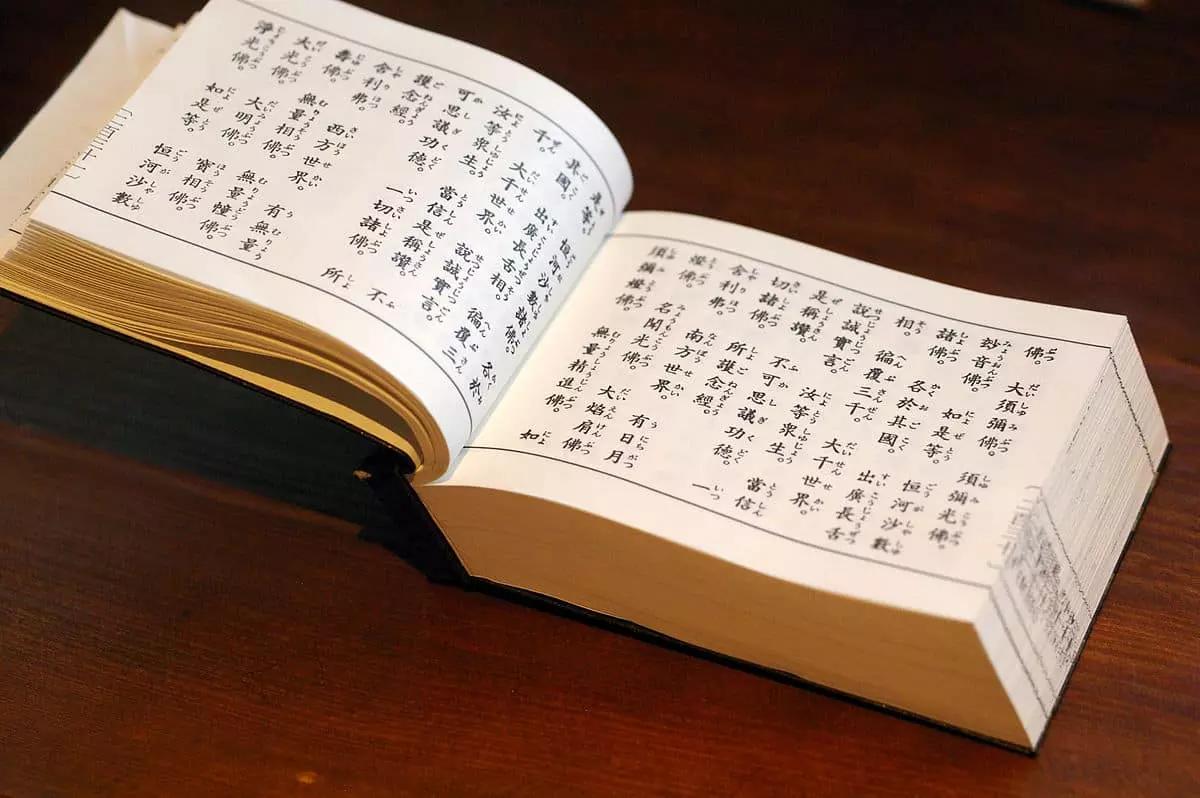 佛。大須彌佛。須彌光佛。
妙音佛。如是等。恒河沙數
諸佛。各於其國。出廣長舌
相。徧覆三千。大千世界。
說誠實言。汝等衆生。當信
是稱讚。不可思議功德。一
切諸佛。所護念經。
舍利弗。南方世界。有日月
燈佛。名聞光佛。大焰肩佛
須彌燈佛。無量精進佛。如
是等。恒河沙數諸佛。各於
其國。出廣長舌相。徧覆三
千。大千世界。說誠實言。
汝等衆生。當信是稱讚。不
可思議功德。一切諸佛。所
護念經。
舍利弗。西方世界。有無量
壽佛。無量相佛。無量幢佛。
大光佛。大明佛。寶相佛。
淨光佛。如是等。恒河沙數
〔二百三十一〕